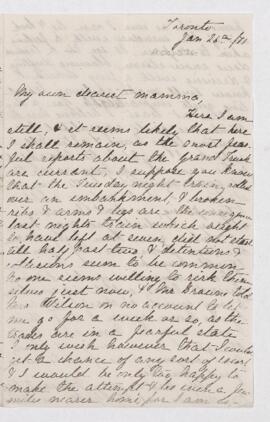 Toronto
Jan 26th /71
My own dearest mamma,
Here I am
still, & it seems likely that here
I shall remain, as the most fear-
ful reports about the Grand Trunk
are current, I suppose you know
that the Tuesday night train, rolled
over an embankment, & broken
ribs & arms & legs are the consequence
last nights train which ought
to have left at seven, did not start
till half past two, & detentions &
collisions seem to be common
no one seems willing to risk them-
selves just now, & Mr Brown told
Mrs Wilson on no account to let
me go for a week or so, as the
are in a fearful state
I only wish however that I could
get a chance of any sort of escort
& I would be only too happy to
make the attempt & be such a few
miles nearer home for I am so